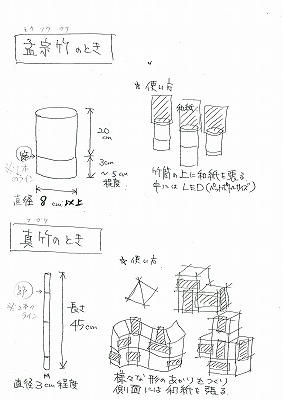 モウソウ ダケ
孟宗竹のとき
20
cm
節
※1本
のライン
3cm
~5cm
程度
直径 8cm以上
※使い方
和紙
竹筒の上に和紙を張る
中にはLED
マダケ
真竹のとき
節
ライン
長さ
45cm
直径3cm程度
※使い方
様々な形のあかりをつくり
側面には和紙を張る